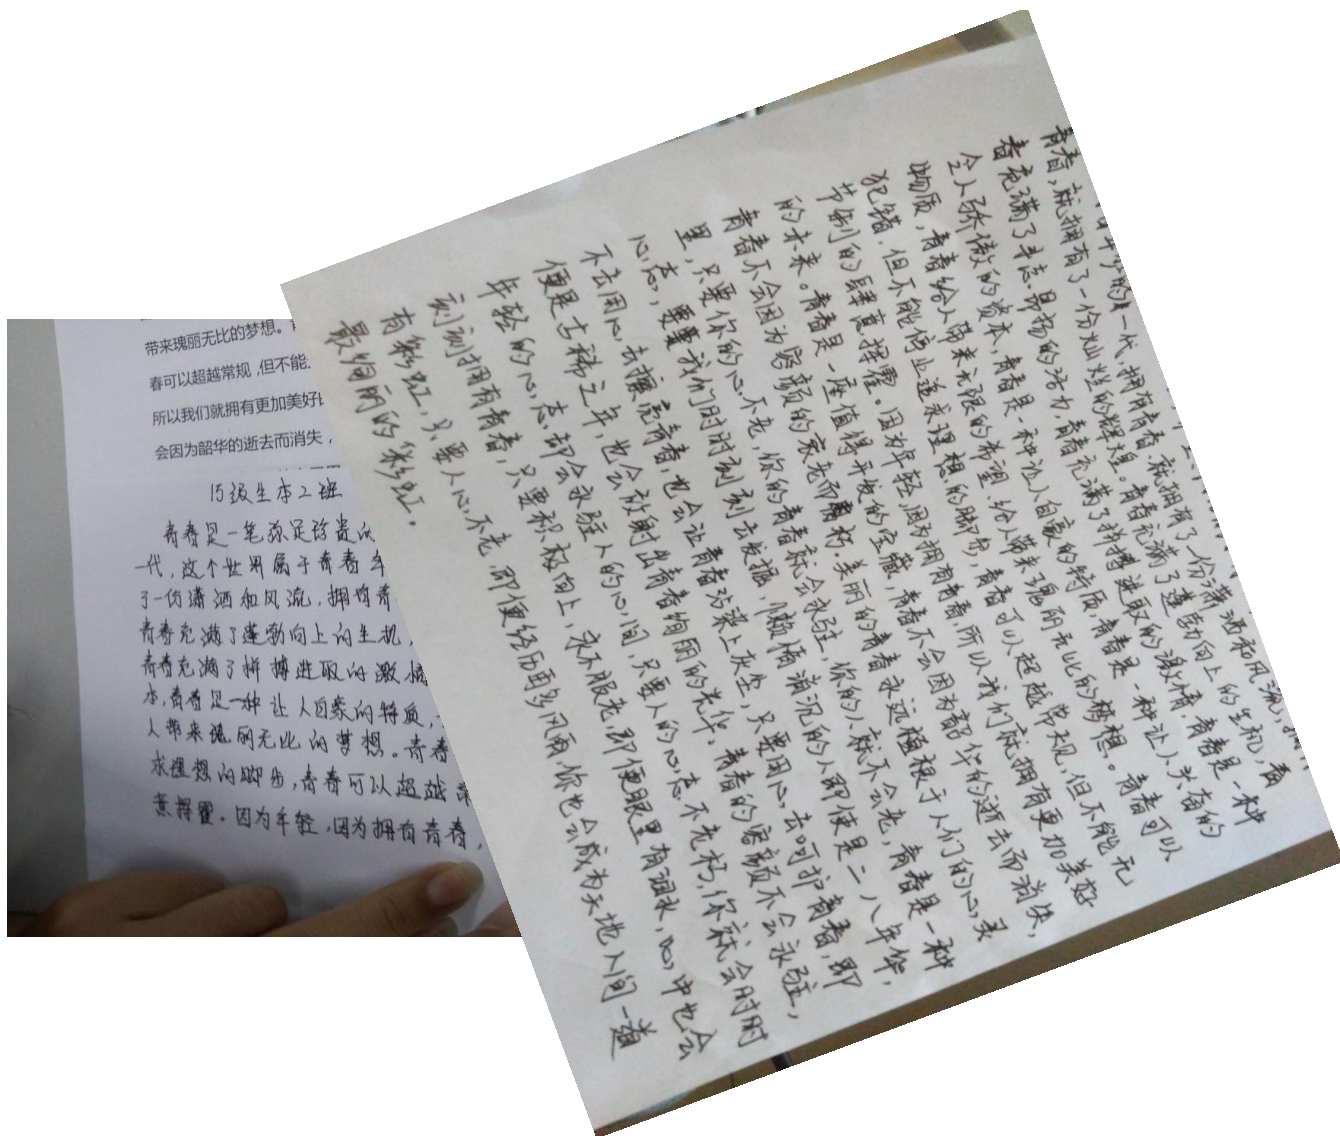 带来瑰丽无比的梦想。
春可以超越常规,但不能
所以我们就拥有更加美好
会因为韶华的逝去而消失,
15级生本2班
青春是一笔弥足珍贵的
一代,这个世界属于青春年
了一份潇洒和风流,拥有青
青春充满了蓬勃向上的生机,
青春充满了拼搏进取的激情
本,青春是一种让人自豪的特质,
人带来瑰丽无比的梦想。青春
求理想的脚步,青春可以超越常
意挥霍。因为年轻,因为拥有青春,
的一代,拥有青春,就拥有了一份潇洒和风流,
青春,就拥有了一份灿烂的辉煌。青春充满了蓬勃向上的生机,青
春充满了斗志昂扬的活力,青春充满了拼搏进取的激情,青春是一种
令人骄傲的资本,青春是一种让人自豪的特质,青春是一种让人头痛的
物质,青春给人带来无限的希望,给人带来瑰丽无比的梦想。青春可以
犯错,但不能停止追求理想的脚步,青春可以超越常规,但不能无
节制的肆意挥霍。因为年轻,因为拥有青春,所以我们就拥有更加美好
的未来。青春是一座值得开发的宝藏,青春不会因为韶华的逝去而消失,
青春不会因为容颜的衰老而腐朽,美丽的青春永远植根于人们的心灵
里,只要你的心不老,你的青春就会永驻,你的人就不会老,青春是一种
心态,需要我们时时刻刻去发掘,懒惰消沉的人即使是二八年华,
不去用心去擦亮青春,也会让青春沾染上灰尘,只要用心去呵护青春,即
便是古稀之年,也会放射出青春绚丽的光华。青春的容颜不会永驻,
年轻的心态却会永驻人的心间,只要人的心态不老朽,你就会时时
刻刻拥有青春,只要积极向上,永不服老,即便眼里有泪水,心中也会
有彩虹,只要人心不老,即便经历再多风雨,你也会成为天地人间一道
最绚丽的彩虹。